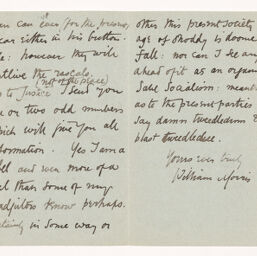 can ease for the present,
car either in his button-
: however they will
outlive the rascals
(most of the place)
to Justice I send you
or two odd numbers
which will give you all
formation. Yes I am a
and even more of a
than some of my
coadjutors know perhaps.
Certainly in some way or
other this present society
age of shoddy is doomed
fall: nor can I see any
ahead of it as an organ
Sake Socialism: mean
as to the present parties
say damn tweedledum &
blast tweedledee.
Yours very truly
William Morris